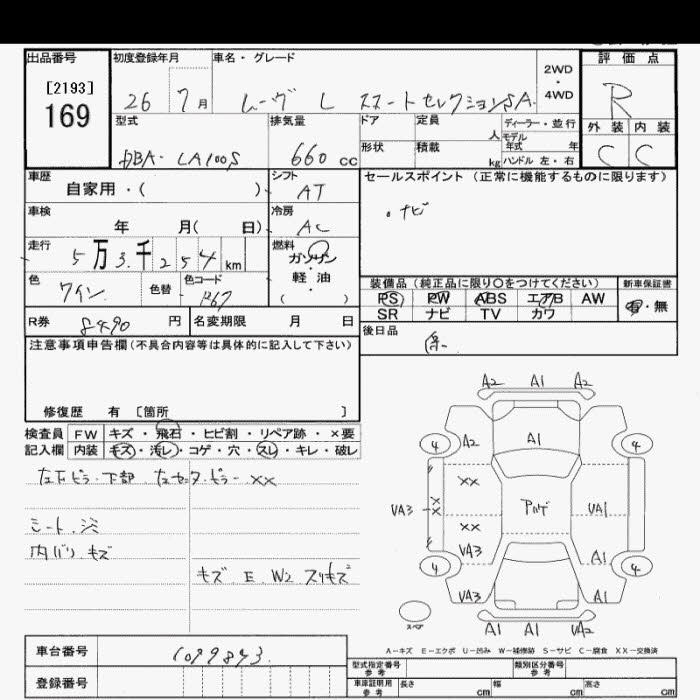 出品番号
[2193]
169
初度登録年月
26 7月
車名・グレード
ムーヴ L スマートセレクションSA
2WD
・
4WD
評価点
R
外装 内装
C C
型式
DBA-LA100S
排気量
660 cc
ドア 定員 人
形状 積載 kg
ディーラー・並行
モデル
年式 年
ハンドル 左・右
車歴
自家用・( )
シフト
AT
車検
年 月( 日)
冷房
AC
走行
5万3千254km
燃料
ガソリン
・
軽油
( )
色
ワイン
色替
色コード
R67
R券 8490 円
名変期限 月 日
セールスポイント(正常に機能するものに限ります)
・ナビ
装備品(純正品に限り○をつけてください)
新車保証書
PS PW ABS エアB AW
SR ナビ TV カワ
有・無
後日品
注意事項申告欄(不具合内容等は具体的に記入して下さい)
修復歴 有 [箇所 ]
検査員
記入欄
FW キズ・飛石・ヒビ割・リペア跡・×要
内装 キズ・汚レ・コゲ・穴・スレ・キレ・破レ
左Fピラー下部 左センターピラー XX
シート・シミ
内バリ キズ
キズ E W2 スリキズ
A2 A1 A2
4 A2 A1 4
XX
VA3 XX アルゲ VA1
XX
VA3 A1
4 4
VA3 A1
スペア
A1 A1 VA2
A-キズ E-エクボ U-凹み W-補修跡 S-サビ C-腐食 XX-交換済
車台番号 1099843
登録番号
型式指定番号
参考
類別区分番号
参考
車庫証明用
参考
長さ cm 幅 cm 高さ cm